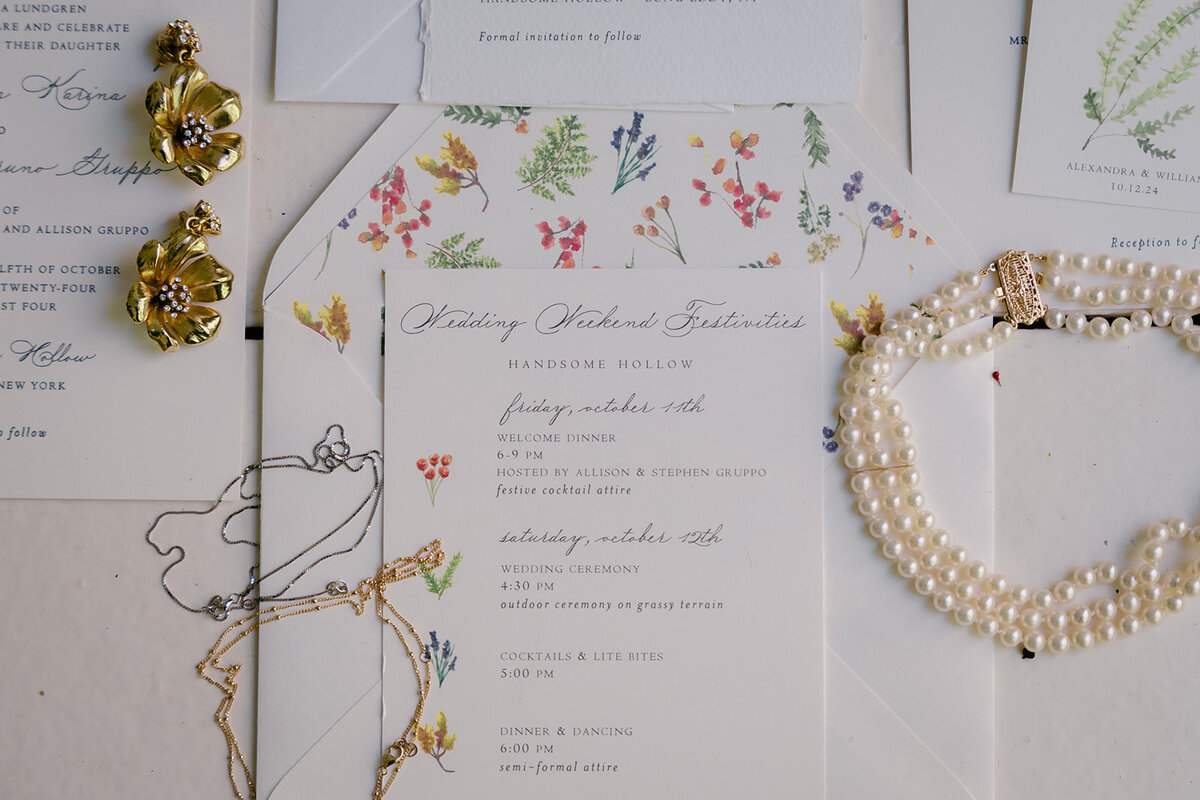 A LUNDGREN
ARE AND CELEBRATE
THEIR DAUGHTER
Karina
Gruppo
OF
AND ALLISON GRUPPO
LFTH OF OCTOBER
TWENTY-FOUR
ST FOUR
Hollow
NEW YORK
to follow
HANDSOME HOLLOW LONG EDDY, NY
Formal invitation to follow
MR
ALEXANDRA & WILLIAM
10.12.24
Reception to fo
Wedding Weekend Festivities
HANDSOME HOLLOW
friday, october 11th
WELCOME DINNER
6-9 PM
HOSTED BY ALLISON & STEPHEN GRUPPO
festive cocktail attire
saturday, october 12th
WEDDING CEREMONY
4:30 PM
outdoor ceremony on grassy terrain
COCKTAILS & LITE BITES
5:00 PM
DINNER & DANCING
6:00 PM
semi-formal attire